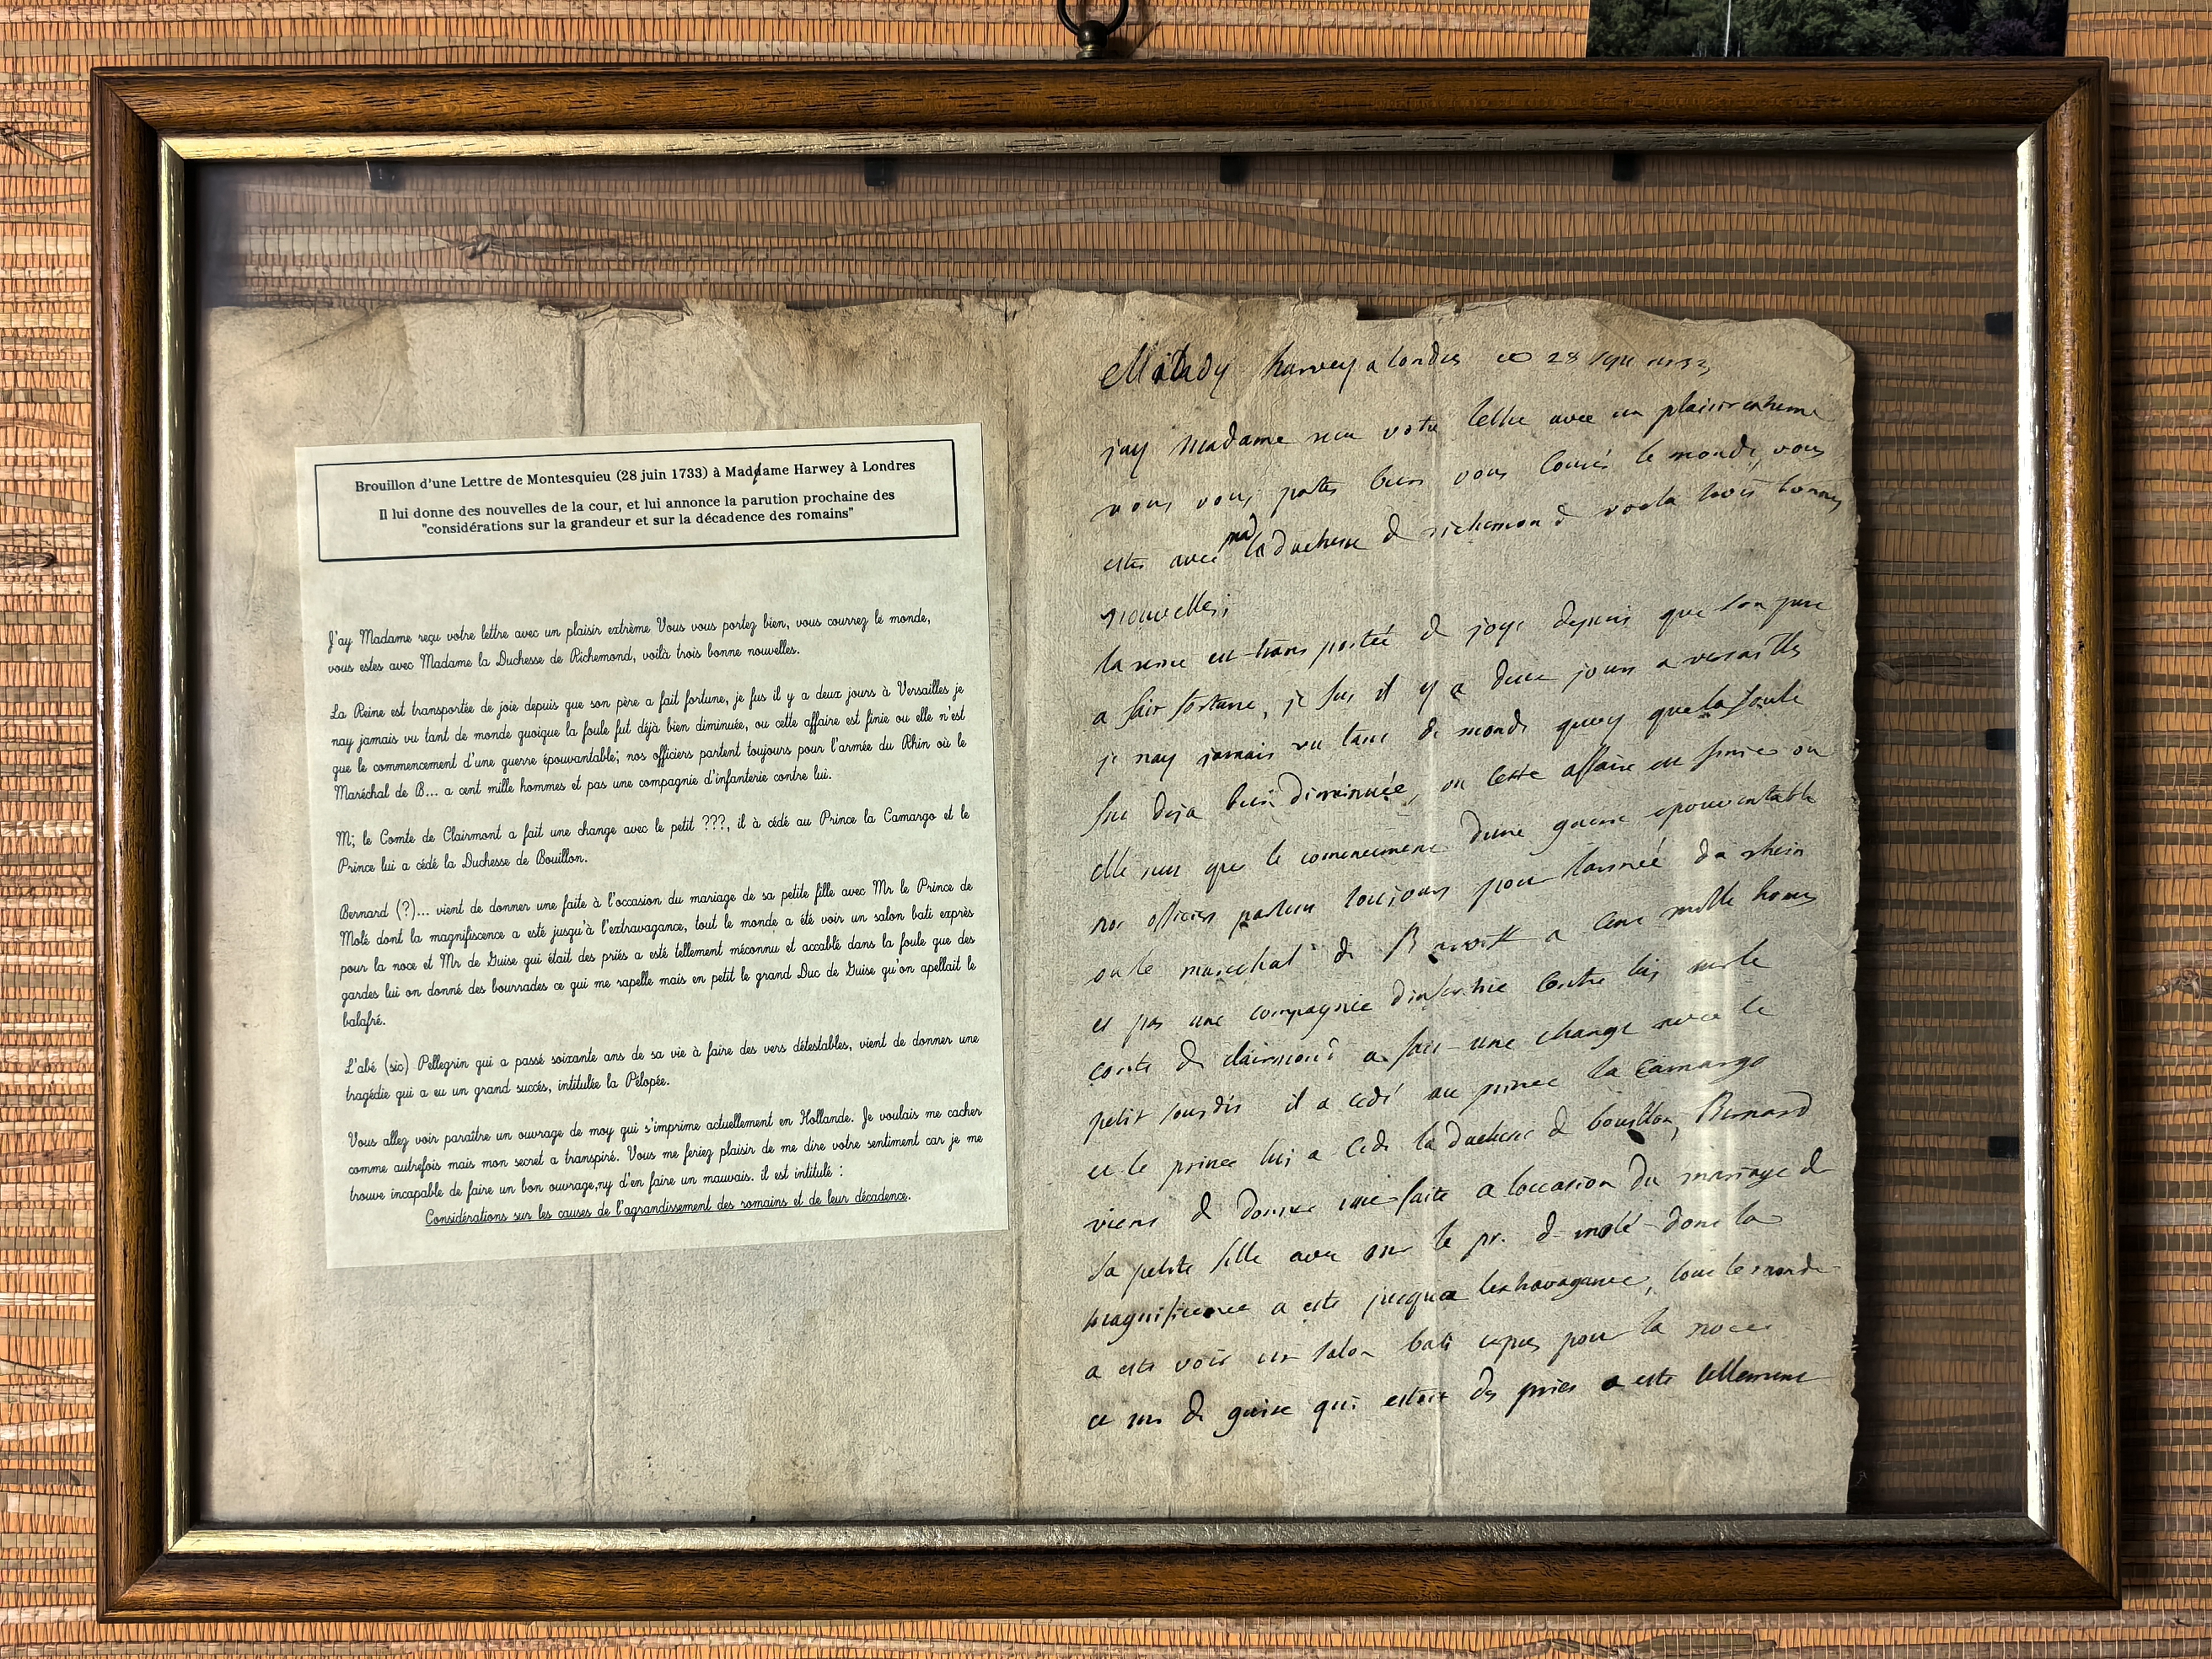 Brouillon d'une Lettre de Montesquieu (28 juin 1733) à Maddame Harwey à Londres
Il lui donne des nouvelles de la cour, et lui annonce la parution prochaine des
"considérations sur la grandeur et sur la décadence des romains"
J'ay Madame reçu votre lettre avec un plaisir extrême Vous vous portez bien, vous courrez le monde,
vous estes avec Madame la Duchesse de Richemond, voilà trois bonne nouvelles.
La Reine est transportée de joie depuis que son père a fait fortune, je fus il y a deux jours à Versailles je
nay jamais vu tant de monde quoique la foule fut déjà bien diminuée, ou cette affaire est finie ou elle n'est
que le commencement d'une guerre épouvantable; nos officiers partent toujours pour l'armée du Rhin où le
Maréchal de B... a cent mille hommes et pas une compagnie d'infanterie contre lui.
M; le Comte de Clairmont a fait une change avec le petit ???, il à cédé au Prince la Camargo et le
Prince lui a cédé la Duchesse de Bouillon.
Bernard (?)... vient de donner une faite à l'occasion du mariage de sa petite fille avec Mr le Prince de
Molé dont la magnifiscence a esté jusqu'à l'extravagance, tout le monde a été voir un salon bati exprès
pour la noce et Mr de Guise qui était des priés a esté tellement méconnu et accablé dans la foule que des
gardes lui on donné des bourrades ce qui me rapelle mais en petit le grand Duc de Guise qu'on apellait le
balafré.
L'abé (sic) Pellegrin qui a passé soixante ans de sa vie à faire des vers détestables, vient de donner une
tragédie qui a eu un grand succés, intitulée la Pélopée.
Vous allez voir paraître un ouvrage de moy qui s'imprime actuellement en Hollande. Je voulais me cacher
comme autrefois mais mon secret a transpiré. Vous me feriez plaisir de me dire votre sentiment car je me
trouve incapable de faire un bon ouvrage,ny d'en faire un mauvais. il est intitulé :
Considérations sur les causes de l'agrandissement des romains et de leur décadence.
Milady harvey a londres ce 28
jay Madame receu votre lettre avec un plaisir extreme
vous vous portes bien vous courés le monde, vous
estes avec mad la duchesse de richemond voila trois bonnes
nouvelles;
la reine est transportée de joye depuis que son pere
a fait fortune, je fus il y a deux jours a versailles
je nay jamais vu tant de monde quoy que la foule
fut deja bien diminuée, ou cette affaire est finie ou
elle nest que le commencement dune guerre epouventable
nos officiers partent toujours pour larmée du rhein
ou le marechal de Barwick a cent mille homes
et pas une compagnie dinfanterie contre luy mr le
conte de clairmont a fait une change avec le
petit il a cedé au prince la Camargo
et le prince luy a cedé la duchesse de bouillon, Bernard
vient de donner une faite a loccasion du mariage de
sa petite fille avec mr le pr. de molé dont la
magnificence a esté jusqua lextravagance, tout le monde
a esté voir un salon bati expres pour la noce
et mr de guise qui estoit des priés a esté tellement